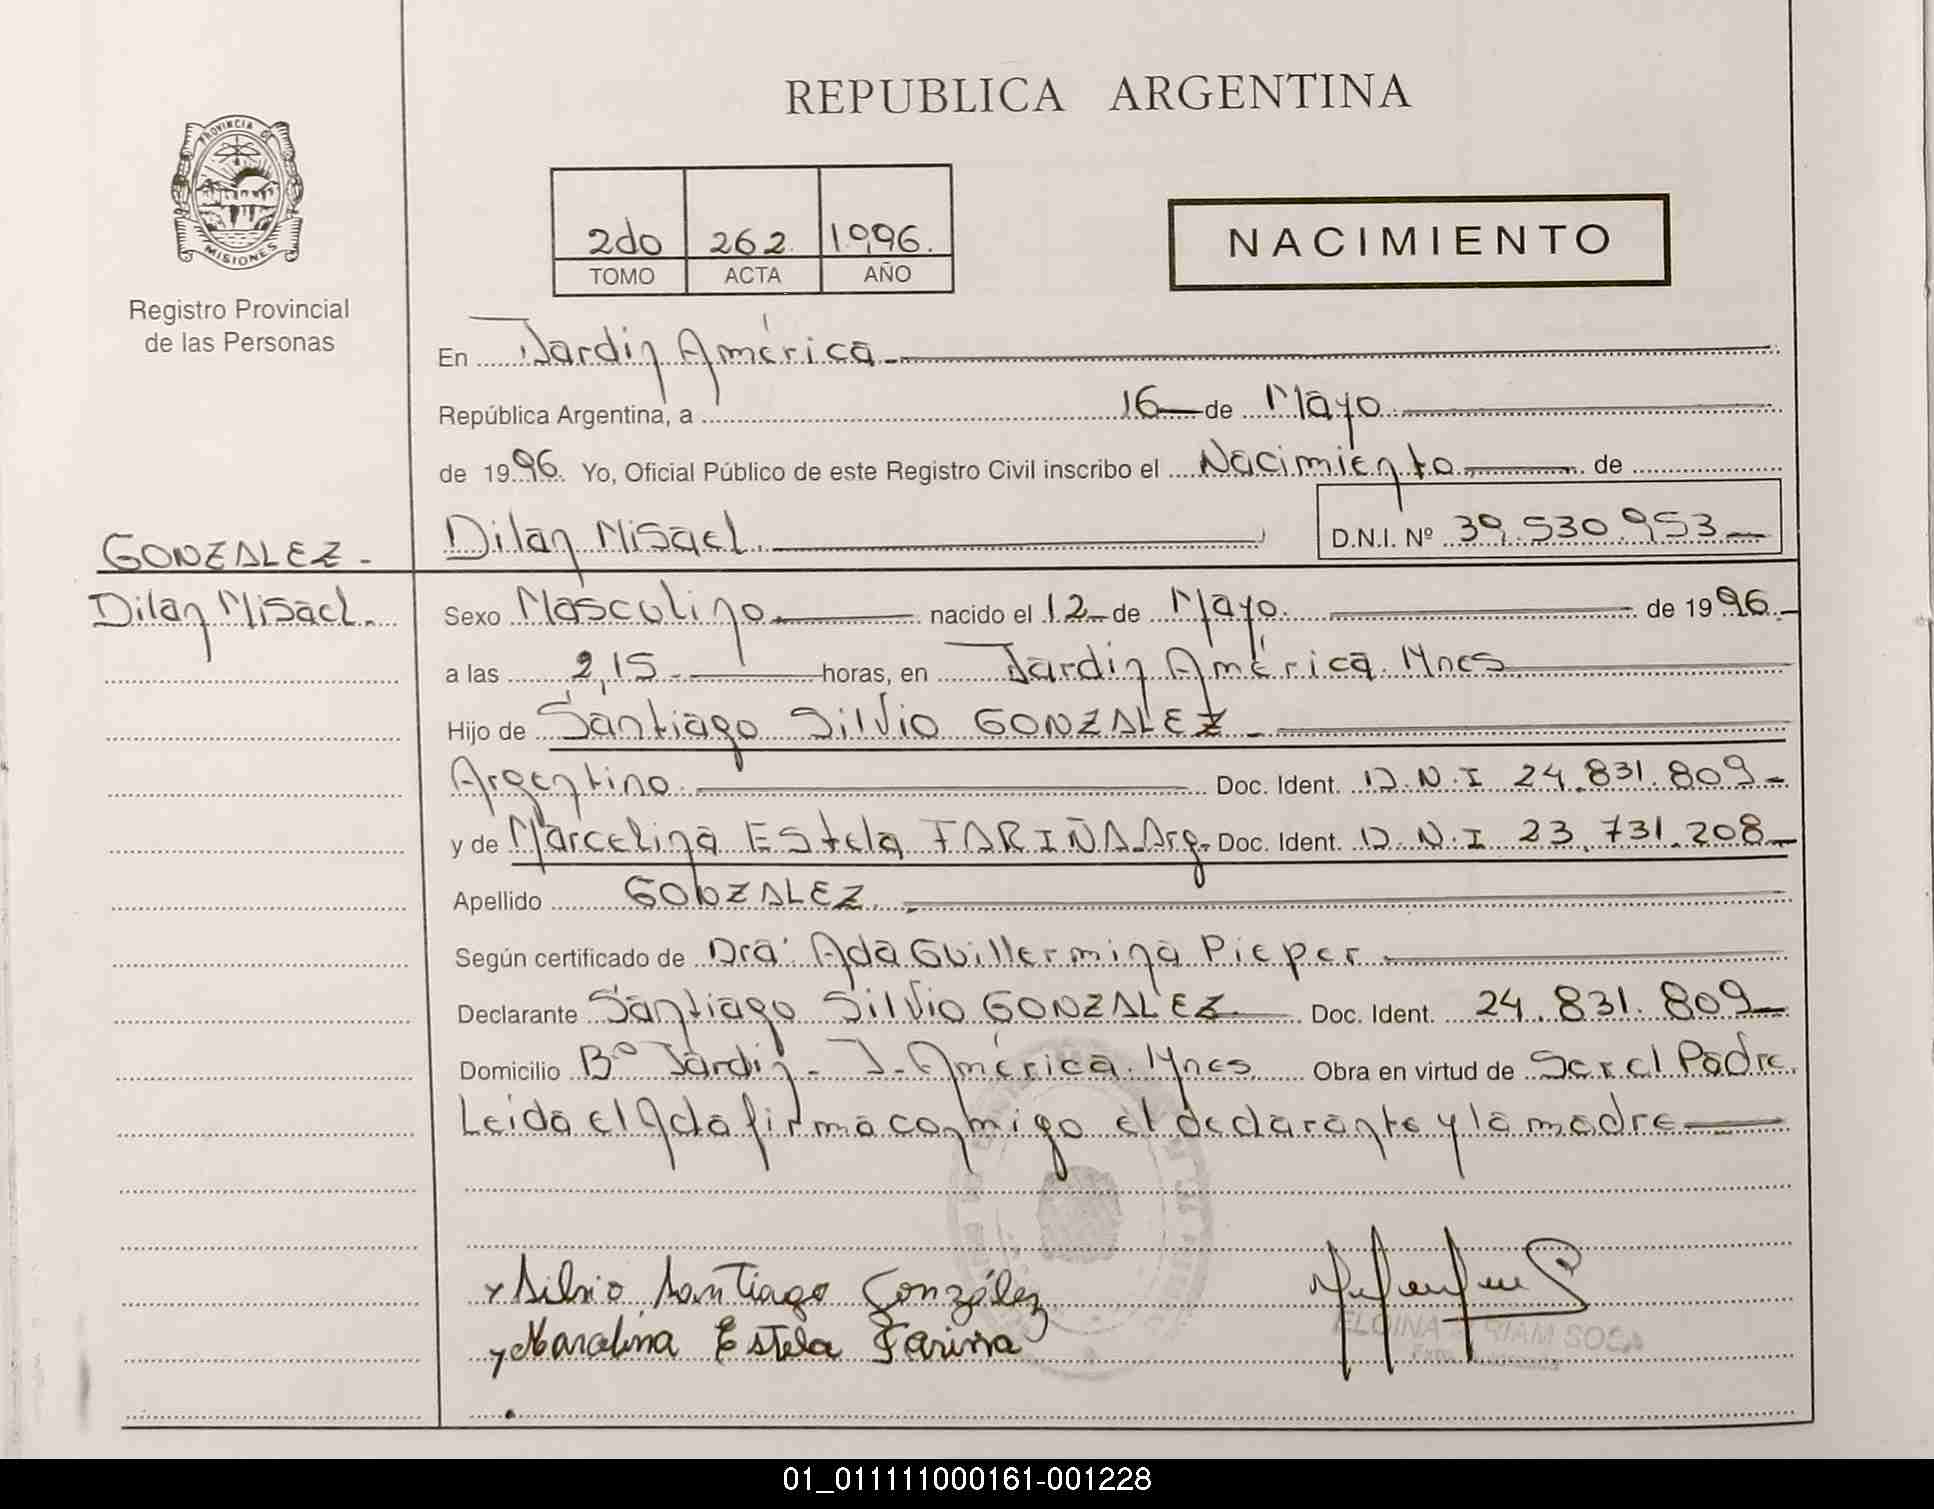 REPUBLICA ARGENTINA
PROVINCIA DE
MISIONES
Registro Provincial
de las Personas
2do 262 1996.
TOMO ACTA AÑO
NACIMIENTO
En Jardin América
República Argentina, a 16 de Mayo
de 1996. Yo, Oficial Público de este Registro Civil inscribo el Nacimiento de
Dilan Misael. D.N.I. Nº 39.530.953
GONZALEZ.
Dilan Misael.
Sexo Masculino nacido el 12 de Mayo. de 1996.
a las 2,15 horas, en Jardin América. Mnes
Hijo de Santiago Silvio GONZALEZ
Argentino. Doc. Ident. D.N.I 24.831.809
y de Marcelina Estela FARIÑA Arg. Doc. Ident. D.N.I 23.731.208
Apellido GONZALEZ.
Según certificado de Dra. Ada Guillermina Pieper
Declarante Santiago Silvio GONZALEZ Doc. Ident. 24.831.809
Domicilio Bº Jardin - J. América. Mnes Obra en virtud de Ser el Padre.
Leida el Acta firma conmigo el declarante y la madre
Silvio Santiago González
Marcelina Estela Fariña
SOSA
01_011111000161-001228